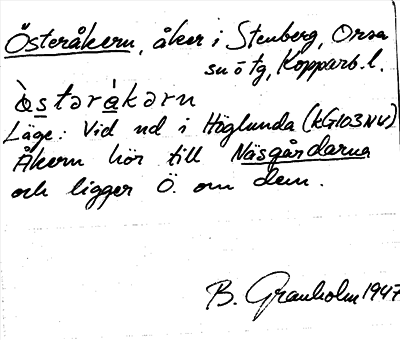 Österåkern, åker i Stenberg, Orsa
sn o tg, Kopparb. l.
ə̀stərákərn
Läge: Vid nd i Höglunda (kG103NV)
Åkern hör till Näsgårdarna
och ligger Ö. om dem.
B. Granholm 1947